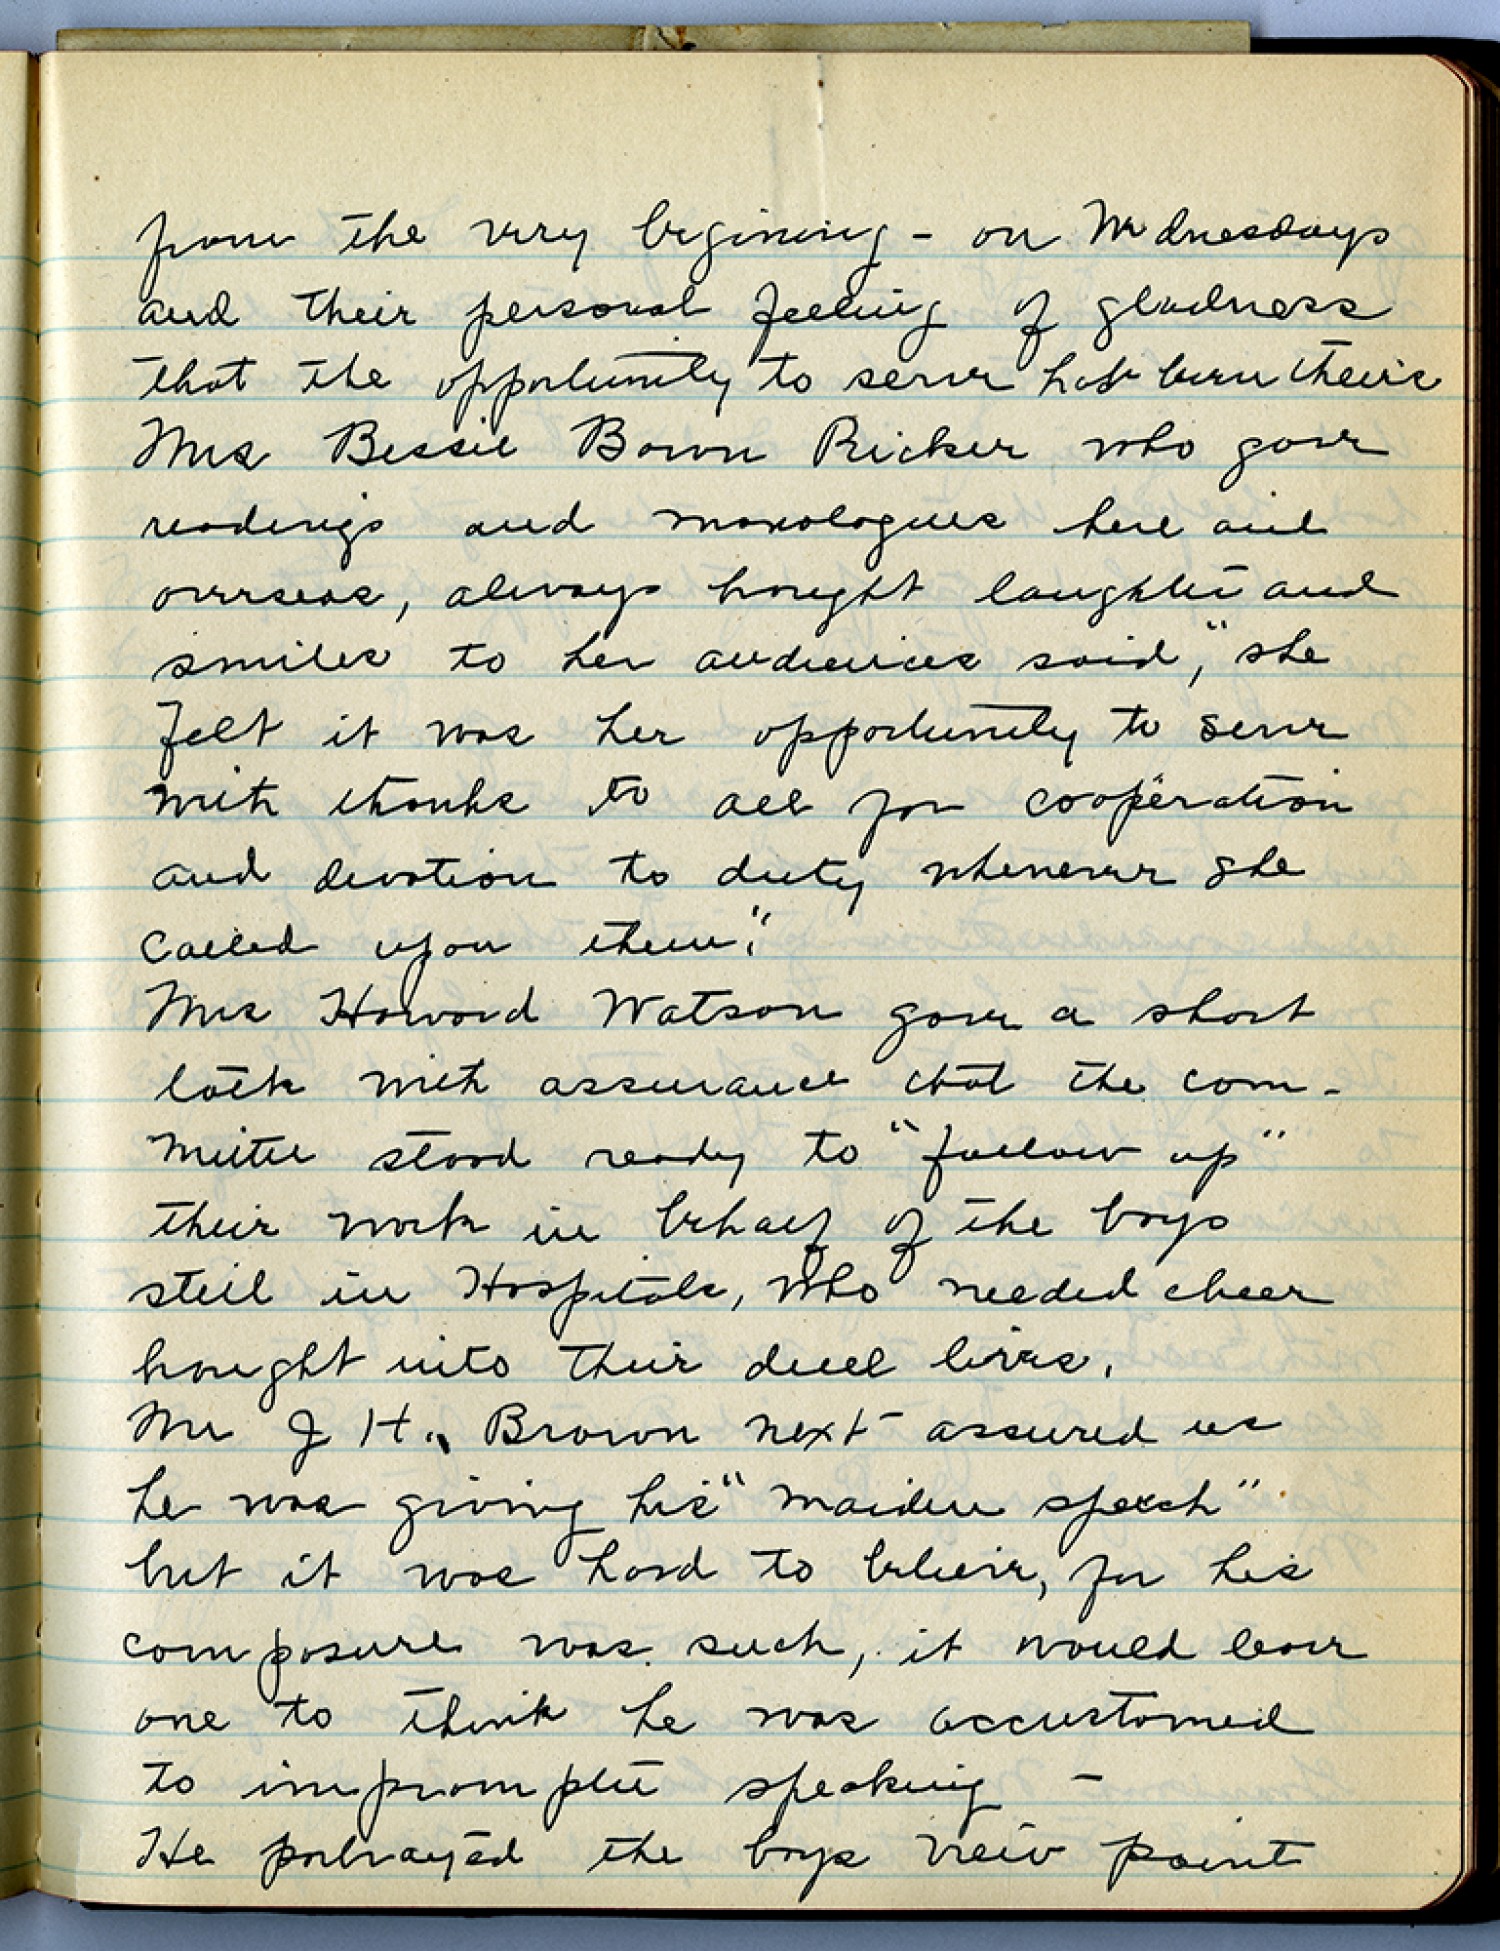 from the very begining - on Wednesdays
and their personal feeling of gladness
that the opportunity to serve had been theirs
Mrs Bessie Bown Ricker, who gave
readings and monologues here and
overseas, always brought laughter and
smiles to her audiences said, "she
felt it was her opportunity to serve
with thanks to all for coöperation
and devotion to duty whenever she
called upon them."
Mrs Howard Watson gave a short
talk with assurance that the com-
mittee stood ready to "follow up"
their work in behalf of the boys
still in Hospitals, who needed cheer
brought into their dull lives.
Mr J H. Brown next assured us
he was giving his "maiden speech"
but it was hard to believe, for his
composure was such, it would leave
one to think he was accustomed
to impromptu speaking -
He portrayed the boys view point